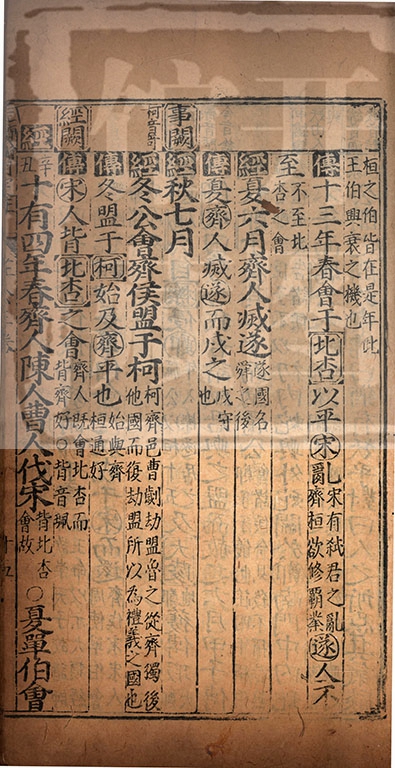 桓之伯皆在是年此
王伯興衰之機也
傳十三年春會于北杏以平宋亂宋有弒君之亂齊桓欲修霸業遂人不
至不至北杏之會
經夏六月齊人滅遂遂國名舜之後
傳夏齊人滅遂而戍之戍守也
事闕
經秋七月
柯音哥
經冬公會齊侯盟于柯柯齊邑曹劌劫盟魯之從齊獨後他國而復劫盟所以為禮義之國也
傳冬盟于柯始及齊平也始與齊桓通好
經闕
傳宋人背北杏之會齊人既會北杏而背齊好○背音珮
經辛丑十有四年春齊人陳人曹人伐宋背北杏會故○夏單伯會
十五